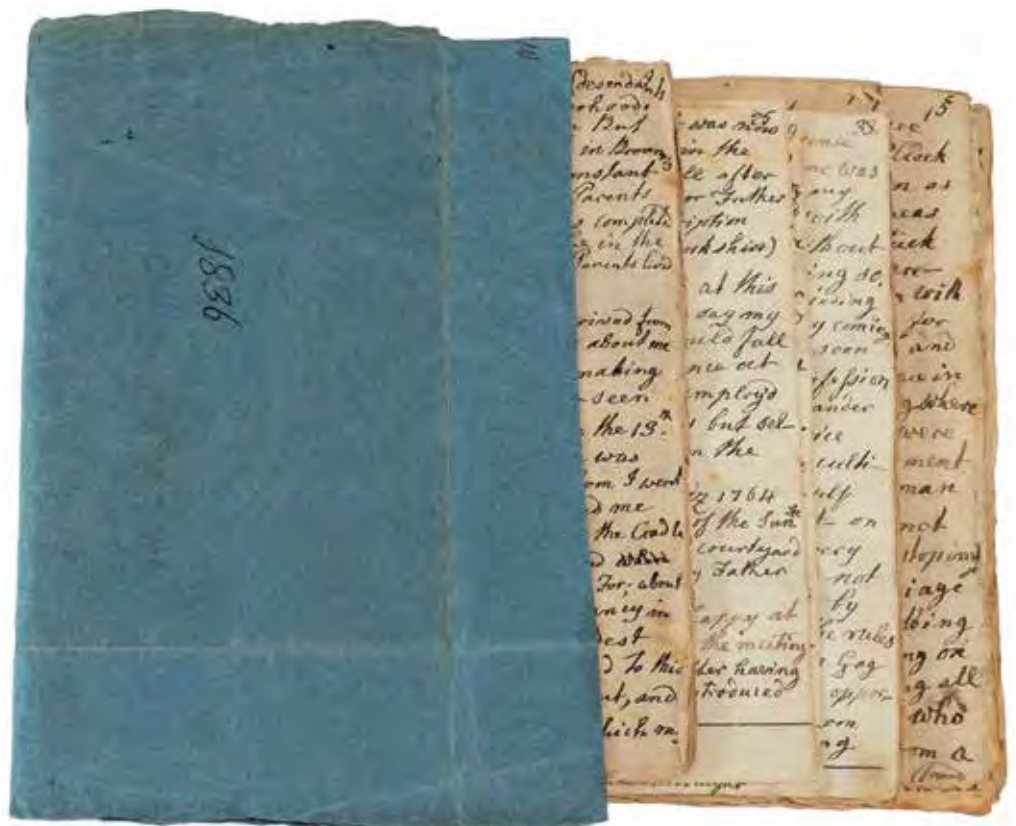 1836
descendants
But
in Brown
instant
Parents
complete
in the
Parents lived
rived from
about me
making
seen
the 13.th
was
om I went
d me
the Cradle
For, about
ancy in
dest
d to this
ut, and
which m
75
was now
in the
ll after
or Father
ription
rkshire)
at this
say my
uld fall
nce at
mploy'd
but sel-
n the
1764
of the Sun
courtyard
y Father
appy at
the meeting
fter having
troduced
38.
ome
me was
my
with
thout
ing so,
iving
y coming
soon
ofession
ander
ice
culti-
self
t on
very
not
by
he rules
Gag
oppor-
om
ng
15
Clock
n as
was
uck
with
for
and
ce in
where
were
ment
man
not
stoping
iage
bing
ng on
g all
who
m a